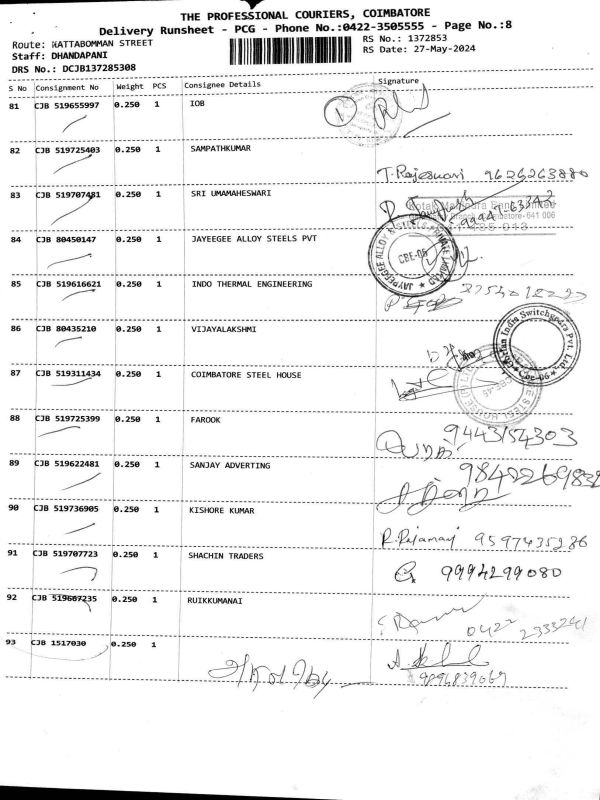 THE PROFESSIONAL COURIERS, COIMBATORE
Delivery Runsheet - PCG - Phone No.:0422-3505555 - Page No.:8
Route: KATTABOMMAN STREET
RS No.: 1372853
Staff: DHANDAPANI
RS Date: 27-May-2024
DRS No.: DCJB137285308
S No Consignment No Weight PCS Consignee Details Signature
81 CJB 519655997 0.250 1 IOB
1
82 CJB 519725403 0.250 1 SAMPATHKUMAR
T. Rajeswari 9626263880
83 CJB 519707481 0.250 1 SRI UMAMAHESWARI
84 CJB 80450147 0.250 1 JAYEEGEE ALLOY STEELS PVT
CBE-06
85 CJB 519616621 0.250 1 INDO THERMAL ENGINEERING
86 CJB 80435210 0.250 1 VIJAYALAKSHMI
India Switchgears Pvt. Ltd.
Cbe-06
87 CJB 519311434 0.250 1 COIMBATORE STEEL HOUSE
88 CJB 519725399 0.250 1 FAROOK
9443154303
89 CJB 519622481 0.250 1 SANJAY ADVERTING
90 CJB 519736905 0.250 1 KISHORE KUMAR
9597435286
91 CJB 519707723 0.250 1 SHACHIN TRADERS
9994299080
92 CJB 519667235 0.250 1 RUIKKUMANAI
0422 2333241
93 CJB 1517030 0.250 1
9894839069